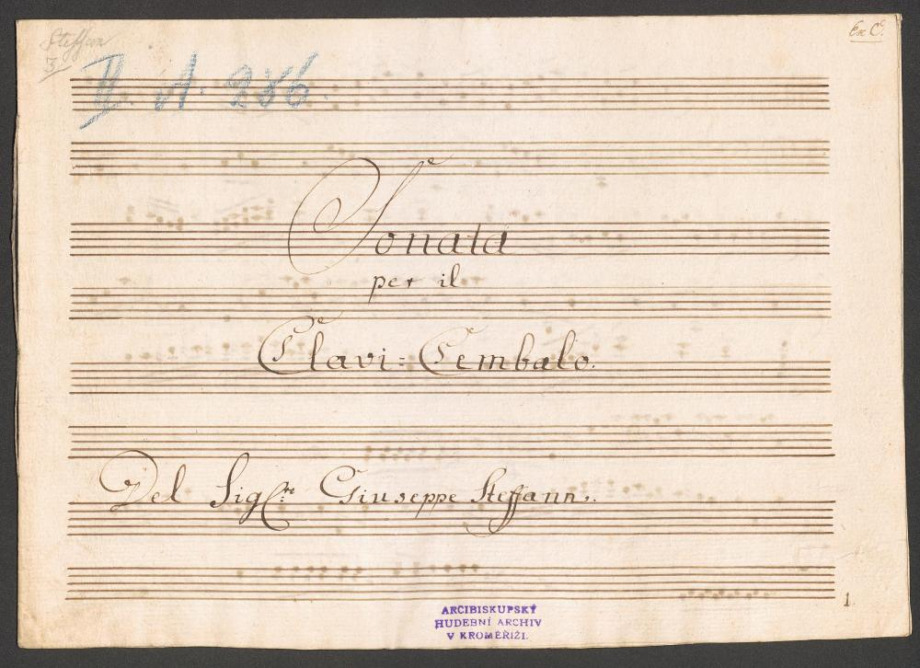 Steffan
3.
Ex C.
II. A. 286.
Sonata
per il
Clavi=Cembalo.
Del Sig:re Giuseppe Steffann.
1.
ARCIBISKUPSKÝ
HUDEBNÍ ARCHIV
V KROMĚŘÍŽI.